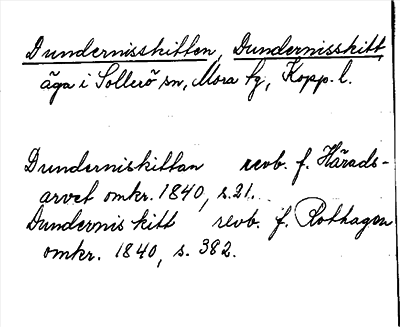 Dundernisskitten, Dundernisskitt
äga i Sollerö sn, Mora tg, Kopp. l.
Dunderniskittan revb. f. Härads-
arvet omkr. 1840, s. 21.
Dundernis kitt revb. f. Rothagen
omkr. 1840, s. 382.